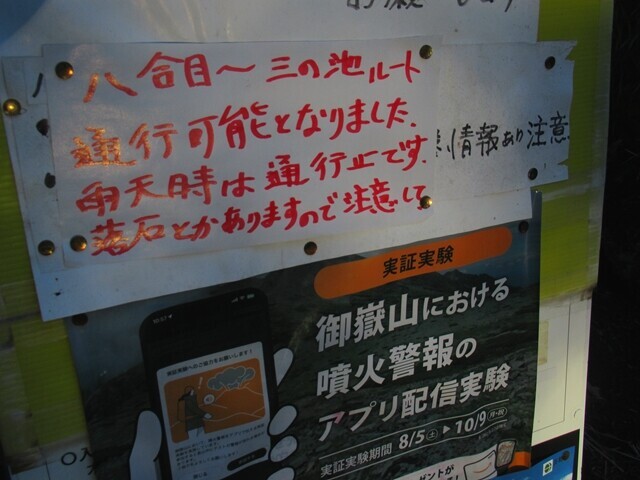 八合目～三の池ルート
通行可能となりました.
雨天時は通行止です.
落石とかありますので注意して
情報あり注意
実証実験
御嶽山における
噴火警報の
アプリ配信実験
実証実験期間 8/5(土)▶10/9(月・祝)